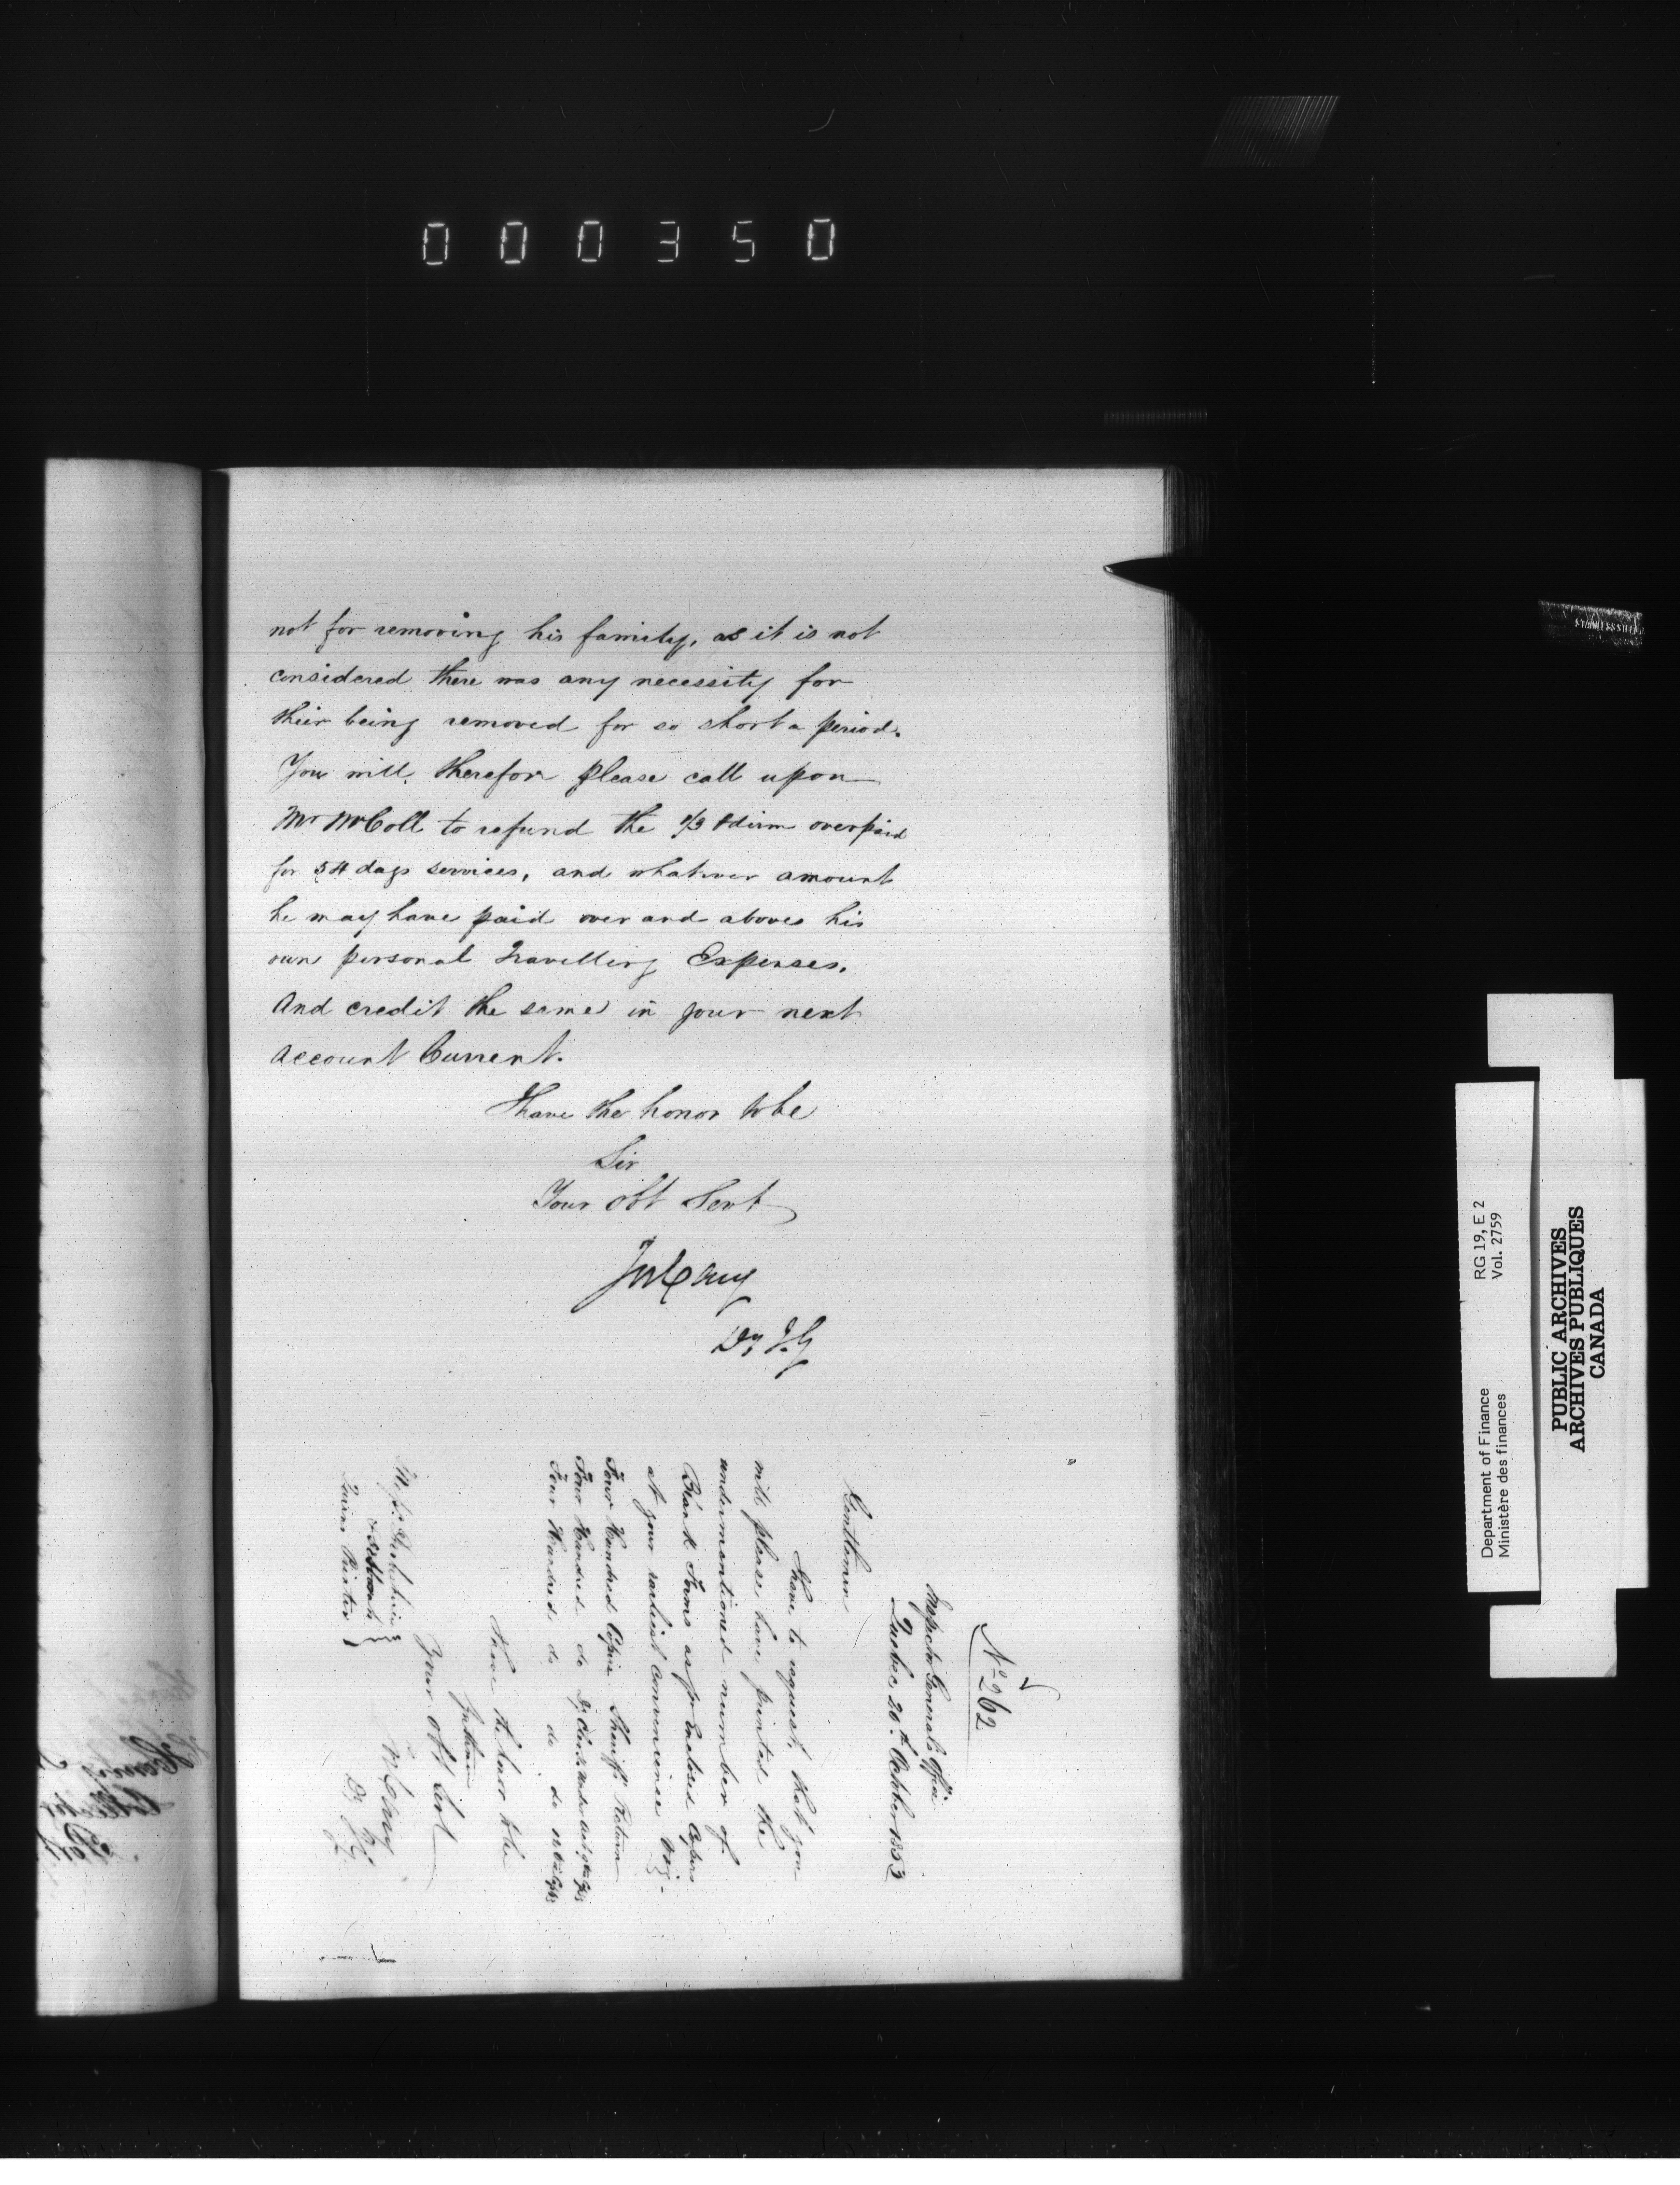 000350
not for removing his family, as it is not
considered there was any necessity for
their being removed for so short a period.
You will, therefore please call upon
Mr McColl to refund the 1/3 ⅌ diem overpaid
for 54 days services, and whatever amount
he may have paid over and above his
own personal Travelling Expenses,
And credit the same in your next
Account Current.
I have the honor to be
Sir
Your obt Servt
Jos Cary
Dy I. G
No 262
Inspector Generals Office
Quebec 20th October 1853
Gentlemen
I have to request, that you
will please, have printed the
undermentioned number of
Blank Forms as pr Enclosed Copies
at your earliest Convenience Viz:-
Four Hundred Copies Sheriffs Return
Four Hundred do Dy Clerk
Four Hundred do do do
I have the honor to be
Gentlemen
Your obt Servt
Jos Cary
Dy I.G.
Messrs Derbishire
& Desbarats
Queens Printer
Department of Finance RG 19, E 2
Ministère des finances Vol. 2759
PUBLIC ARCHIVES
ARCHIVES PUBLIQUES
CANADA